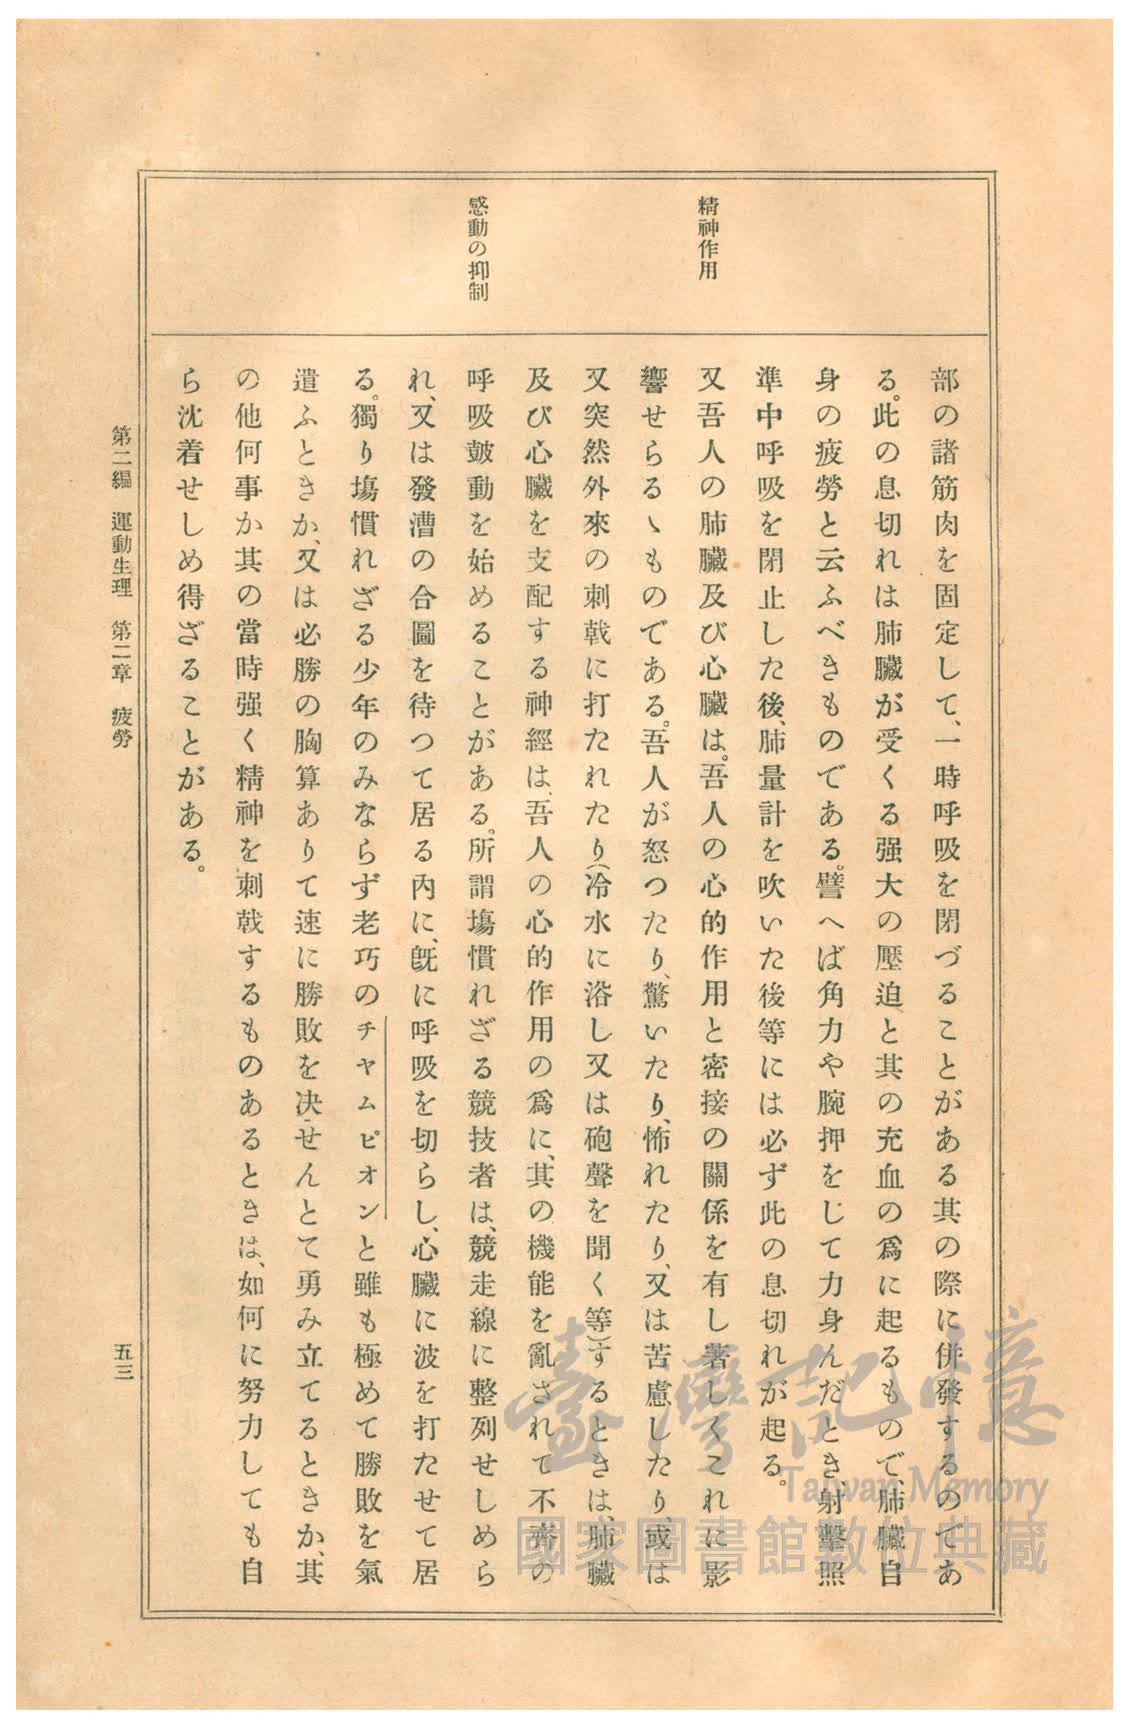 精神作用
感動の抑制
部の諸筋肉を固定して、一時呼吸を閉づることがある其の際に併發するのであ
る。此の息切れは肺臟が受くる强大の壓迫と其の充血の爲に起るもので、肺臟自
身の疲勞と云ふべきものである。譬へば角力や腕押をじて力身んだとき、射擊照
準中呼吸を閉止した後、肺量計を吹いた後等には必ず此の息切れが起る。
又吾人の肺臟及び心臟は。吾人の心的作用と密接の關係を有し著しくこれに影
響せらるゝものである。吾人が怒つたり、驚いたり、怖れたり、又は苦慮したり、或は
又突然外來の刺戟に打たれたり(冷水に浴し又は砲聲を聞く等)するときは、肺臟
及び心臟を支配する神經は、吾人の心的作用の爲に、其の機能を亂されて不齊の
呼吸皷動を始めることがある。所謂塲慣れざる競技者は、競走線に整列せしめら
れ、又は發漕の合圖を待つて居る內に、旣に呼吸を切らし、心臟に波を打たせて居
る。獨り塲慣れざる少年のみならず老巧のチヤムピオンと雖も極めて勝敗を氣
遣ふときか、又は必勝の胸算ありて速に勝敗を決せんとて勇み立てるときか、其
の他何事か其の當時强く精神を刺戟するものあるときは、如何に努力しても自
ら沈着せしめ得ざることがある。
第二編 運動生理 第二章 疲勞
五三
臺灣記憶
Taiwan Memory
國家圖書館數位典藏